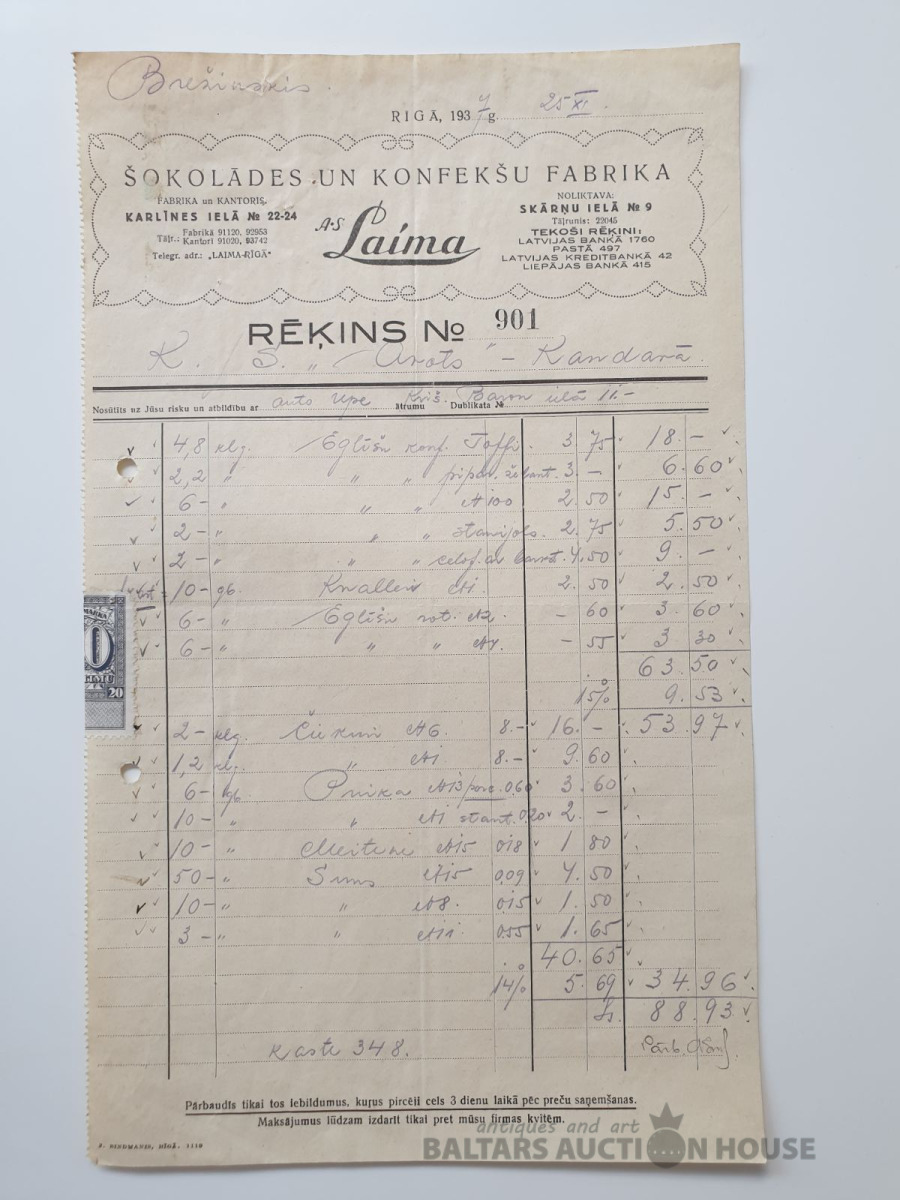 Brežinskis.
RIGĀ, 1937 g. 25 XI.
ŠOKOLĀDES UN KONFEKŠU FABRIKA
FABRIKA un KANTORIS,
KARLĪNES IELĀ № 22-24
Tāļr.: Fabrikā 91120, 92953
Kantorī 91020, 93742
Telegr. adr.: „LAIMA-RĪGĀ"
A-S Laima
NOLIKTAVA:
SKĀRŅU IELĀ № 9
Tāļrunis: 22045
TEKOŠI RĒĶINI:
LATVIJAS BANKĀ 1760
PASTĀ 497
LATVIJAS KREDITBANKĀ 42
LIEPĀJAS BANKĀ 415
RĒĶINS № 901
K. S. „Arots" – Kandavā.
Nosūtīts uz Jūsu risku un atbildību ar auto Upe ātrumu Dublikata № Kriš. Baron ielā 11.-
4,8 klg. Eglīšu konf. Toffi. 3.75 18.–
2,2 " " " 3.– 6.60
6– " " " A100 2.50 15.–
2– " " " stanijols 2.75 5.50
2– " " " celof. ar 4.50 9.–
10– gb. Knallein A1. 2.50 2.50
6– " Eglīšu rot. A2. –60 3.60
6– " " " A4. –55 3 30
63.50
15% 9.53
2– klg. Čiekuri A6 8.– 16.– 53.97
1,2 klg. " A1 8.– 9.60
6– gb. A13 0.60 3.60
10– " " A1 stant. 0.20 2.–
10– " Meitene A15 0.18 1 80
50– " Suns A15 0.09 4.50
10– " " A8. 0.15 1.50
3– " " A11 0.55 1.65
40.65
14% 5.69 34.96
Ls. 88.93
Kaste 348.
Pārb.
20
Pārbaudīs tikai tos iebildumus, kuŗus pircēji cels 3 dienu laikā pēc preču saņemšanas.
Maksājumus lūdzam izdarīt tikai pret mūsu firmas kvītēm.
antiques and art
BALTARS AUCTION HOUSE